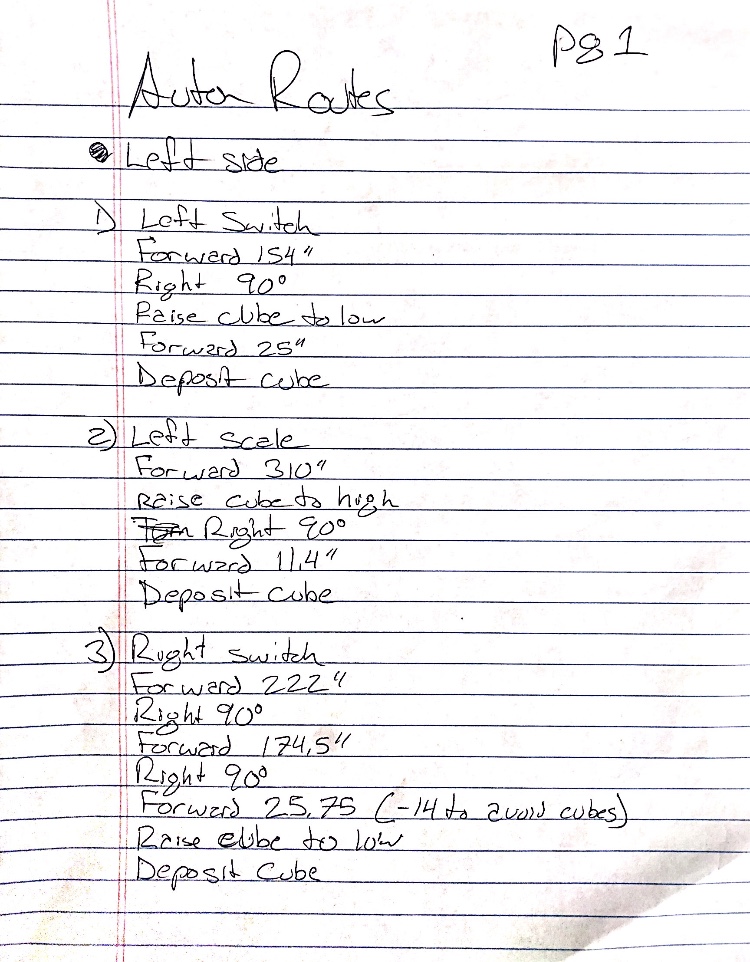 Pg 1
Auton Routes
Left side
1) Left Switch
Forward 154"
Right 90°
Raise cube to low
Forward 25"
Deposit cube
2) Left scale
Forward 310"
raise cube to high
Right 90°
Forward 11.4"
Deposit cube
3) Right switch
Forward 222"
Right 90°
Forward 174.5"
Right 90°
Forward 25.75 (-14 to avoid cubes)
Raise cube to low
Deposit Cube